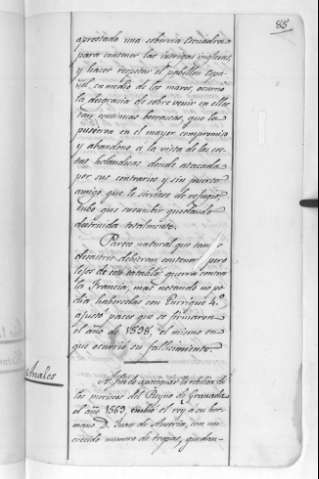 85
aprestada una soberbia Escuadra
para contener las
y hacer respetar el pabellon Espa-
ñol en medio de los mares, ocurrio
la desgracia de sobrevenir en ellos
tan borrascas, que la
pusieron en el mayor compromiso
y abandono á la vista de las cos-
tas holandesas donde atacada
por sus contrarios y sin puerto
amigo que le sirviese de refugio,
hubo que sucumbir quedando
destruida totalmente.
Parece natural que tantos
desastres debieran contener pero
lejos de esto entabló guerra contra
la Francia, mas notando no po-
dia habérselas con Enrique 4º
ajustó paces que se firmaron
el año de 1598, el mismo en
que ocurrió su fallecimiento.
Anales
A fin de apaciguar la rebelion de
los moriscos del Reyno de Granada
el año 1569 envió el rey á su her-
mano D. Juan de Austria, con un
crecido numero de tropas, quedan-